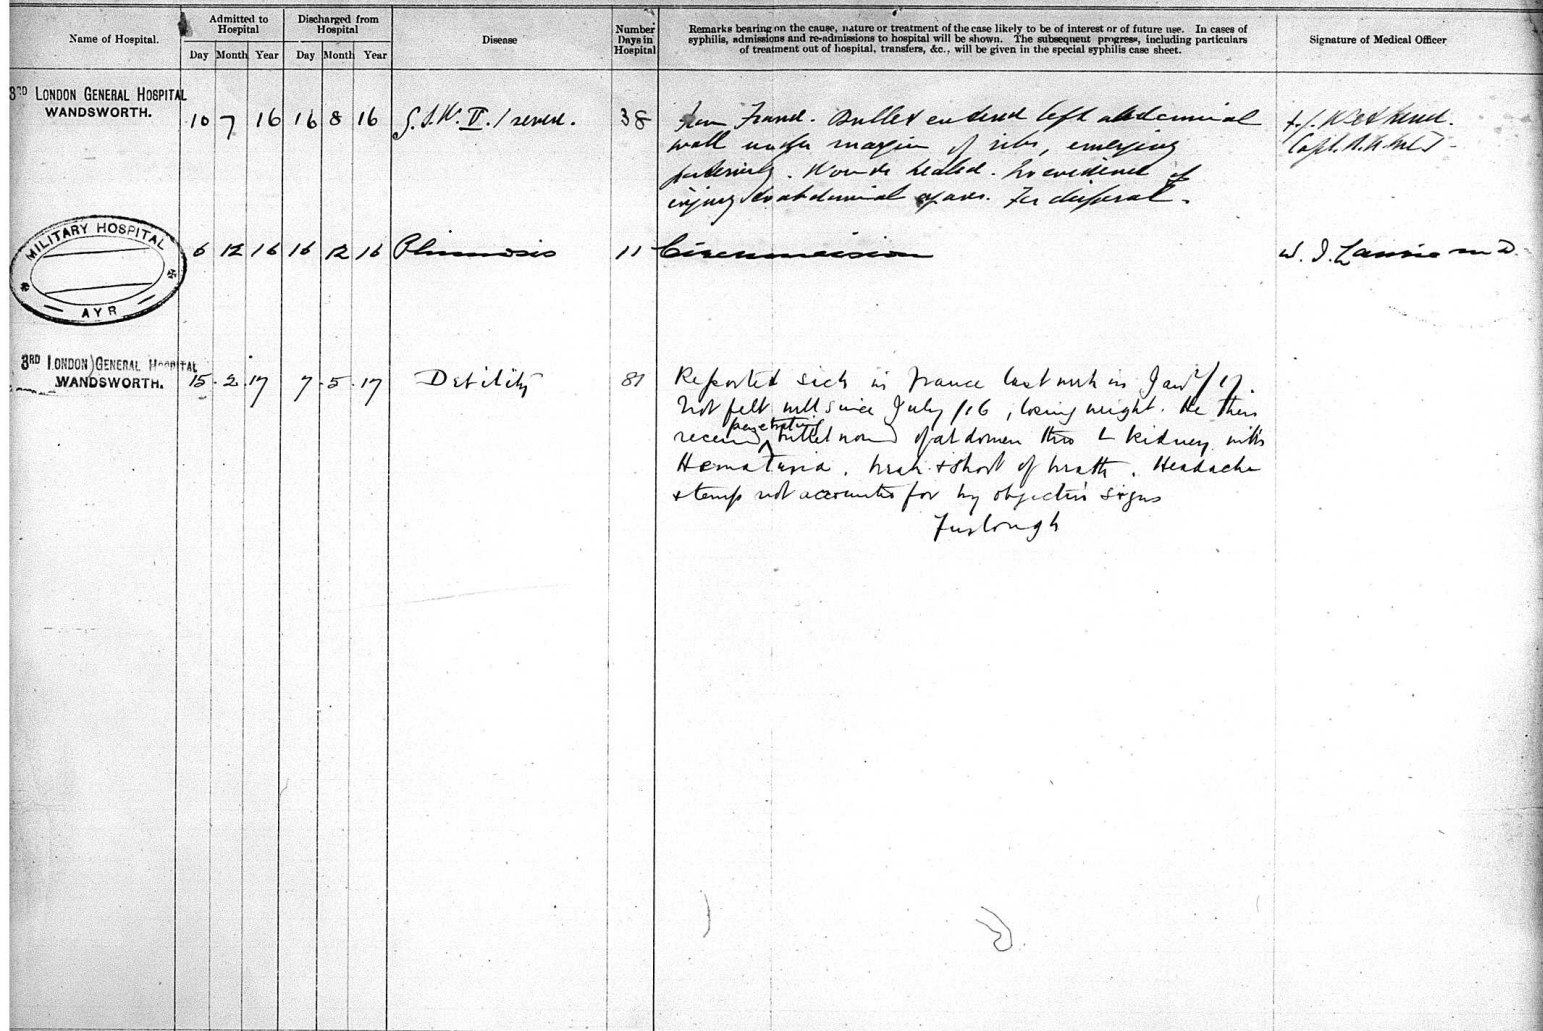 Name of Hospital.
Admitted to Hospital
Day Month Year
Discharged from Hospital
Day Month Year
Disease
Number Days in Hospital
Remarks bearing on the cause, nature or treatment of the case likely to be of interest or of future use. In cases of
syphilis, admissions and re-admissions to hospital will be shown. The subsequent progress, including particulars
of treatment out of hospital, transfers, &c., will be given in the special syphilis case sheet.
Signature of Medical Officer
3RD LONDON GENERAL HOSPITAL
WANDSWORTH.
10 7 16 16 8 16 G.S.W. II / severe. 38
From France. Bullet entered left abdominal
wall under margin of ribs, emerging
posteriorly. Wounds healed. No evidence of
injury to abdominal organs. For disposal.
Capt.
MILITARY HOSPITAL
AYR
6 12 16 16 12 16 Phimosis 11 Circumcision W. J. M.D.
3RD LONDON GENERAL HOSPITAL
WANDSWORTH.
15 . 2 . 17 7 . 5 . 17 Debility 81
Reported sick in France last week in Jany/17.
Not felt well since July /16, losing weight. He then
received penetrating bullet wound of abdomen thro L kidney with
Hematuria. Weak & short of breath. Headache
& temp not accounted for by objective signs
Furlough